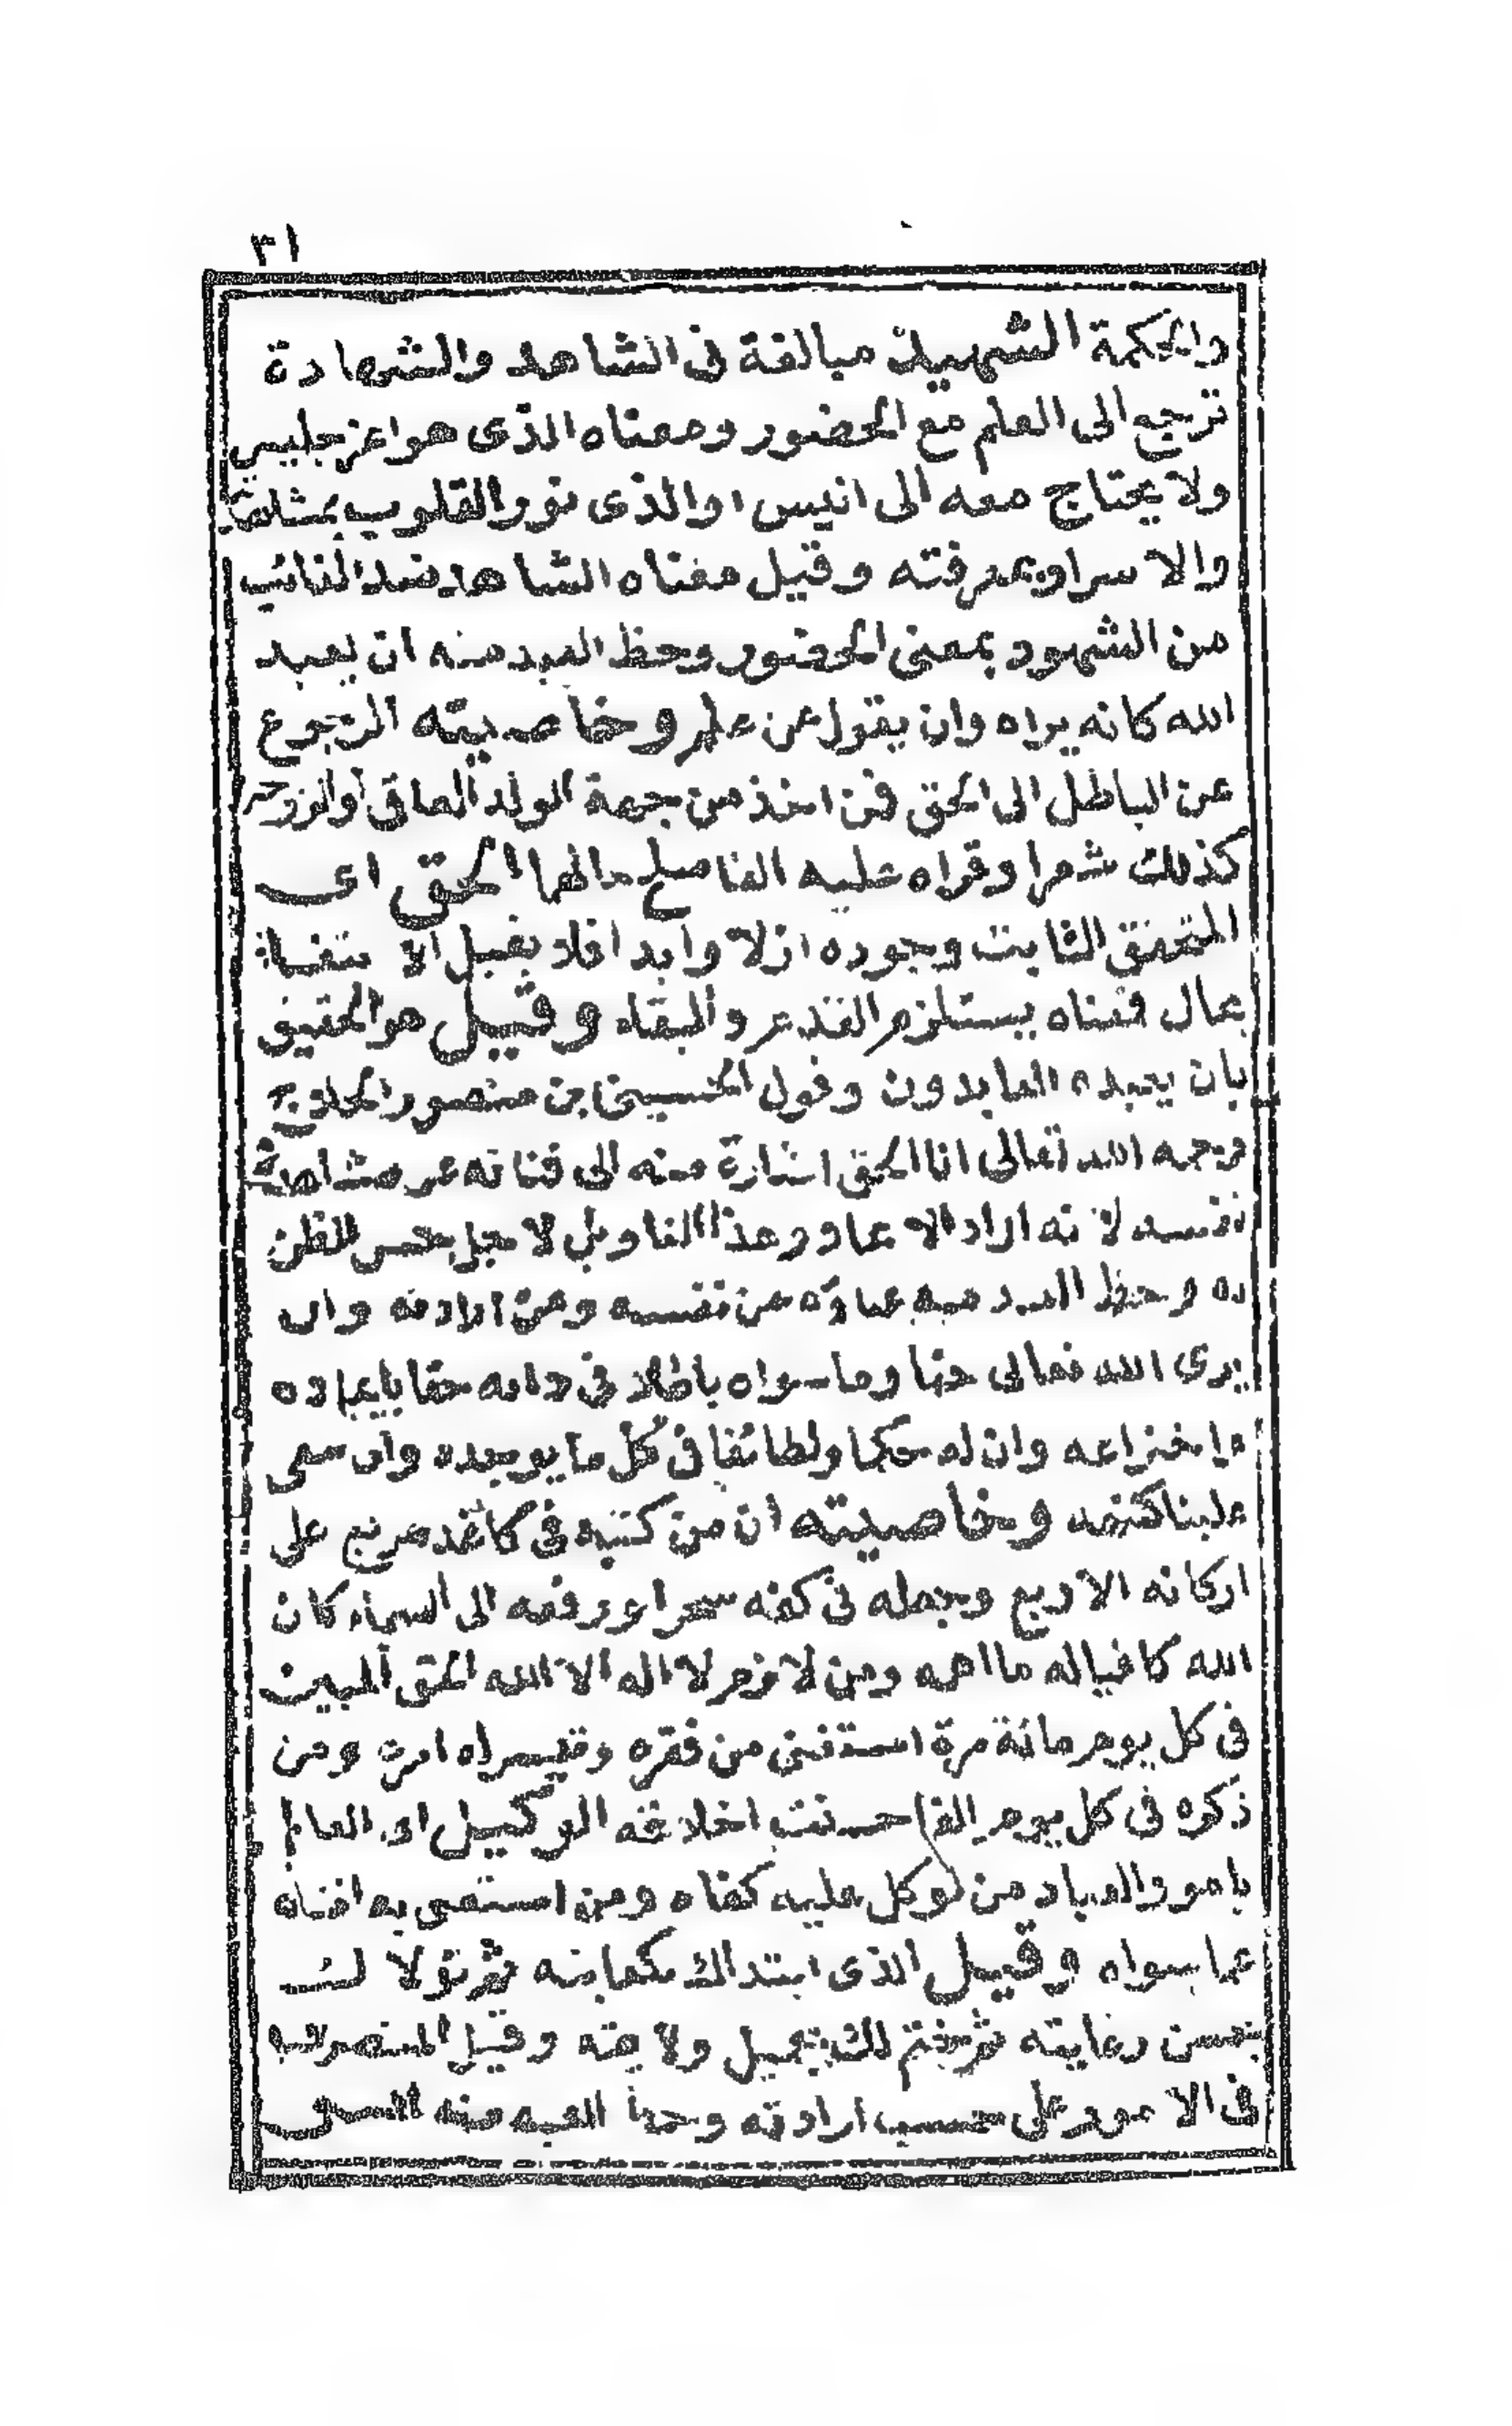 ٣١
والحكمة الشهيد مبالغة فى الشاهد والشهادة
ترجع الى العلم مع الحضور ومعناه الذى هو اعز جليس
ولا يحتاج معه الى انيس او الذى نور القلوب بمشاهدته
والاسرار بمعرفته وقيل معناه الشاهد ضد الغائب
من الشهود بمعنى الحضور وحظ العبد منه ان يعبد
الله كانه يراه وان يقول عن علم وخاصيته الرجوع
عن الباطل الى الحق فمن اخذ من جبهة الولد العاق او الزوجة
كذلك شعرا وقراه عليه الفا صلح حالهما الحق اى
المتحقق الثابت وجوده ازلا وابدا فلا يقبل الانتفاء
بحال فمعناه يستلزم القدم والبقاء وقيل هو الحقيق
بان يعبده العابدون وقول الحسين بن منصور الحلاج
رحمه الله تعالى انا الحق اشارة منه الى فنائه عن مشاهدة
نفسه لا انه اراد الاتحاد وهذا التاويل لاجل حسن الظن
به وحظ العبد منه فناؤه عن نفسه وعن ارادته وان
يرى الله تعالى حقا وما سواه باطلا فى ذاته حقا بايجاده
واختراعه وان له حكما ولطائفا فى كل ما يوجده وان خفى
علينا كنهه وخاصيته ان من كتبه فى كاغد مربع على
اركانه الاربع وجعله فى كفه سحرا ورفعه الى السماء كان
الله كافيا له ما اهمه ومن لازم لا اله الا الله الحق المبين
فى كل يوم مائة مرة استغنى من فقره وتيسر له امره ومن
ذكره فى كل يوم الفا حسنت اخلاقه الوكيل اى العالم
بامور العباد من توكل عليه كفاه ومن استغنى به اغناه
عما سواه وقيل الذى ابتداك بكفايته ثم تولاك
بحسن رعايته ثم ختم لك بجميل ولايته وقيل المتصرف
فى الامور على حسب ارادته وحظ العبد منه